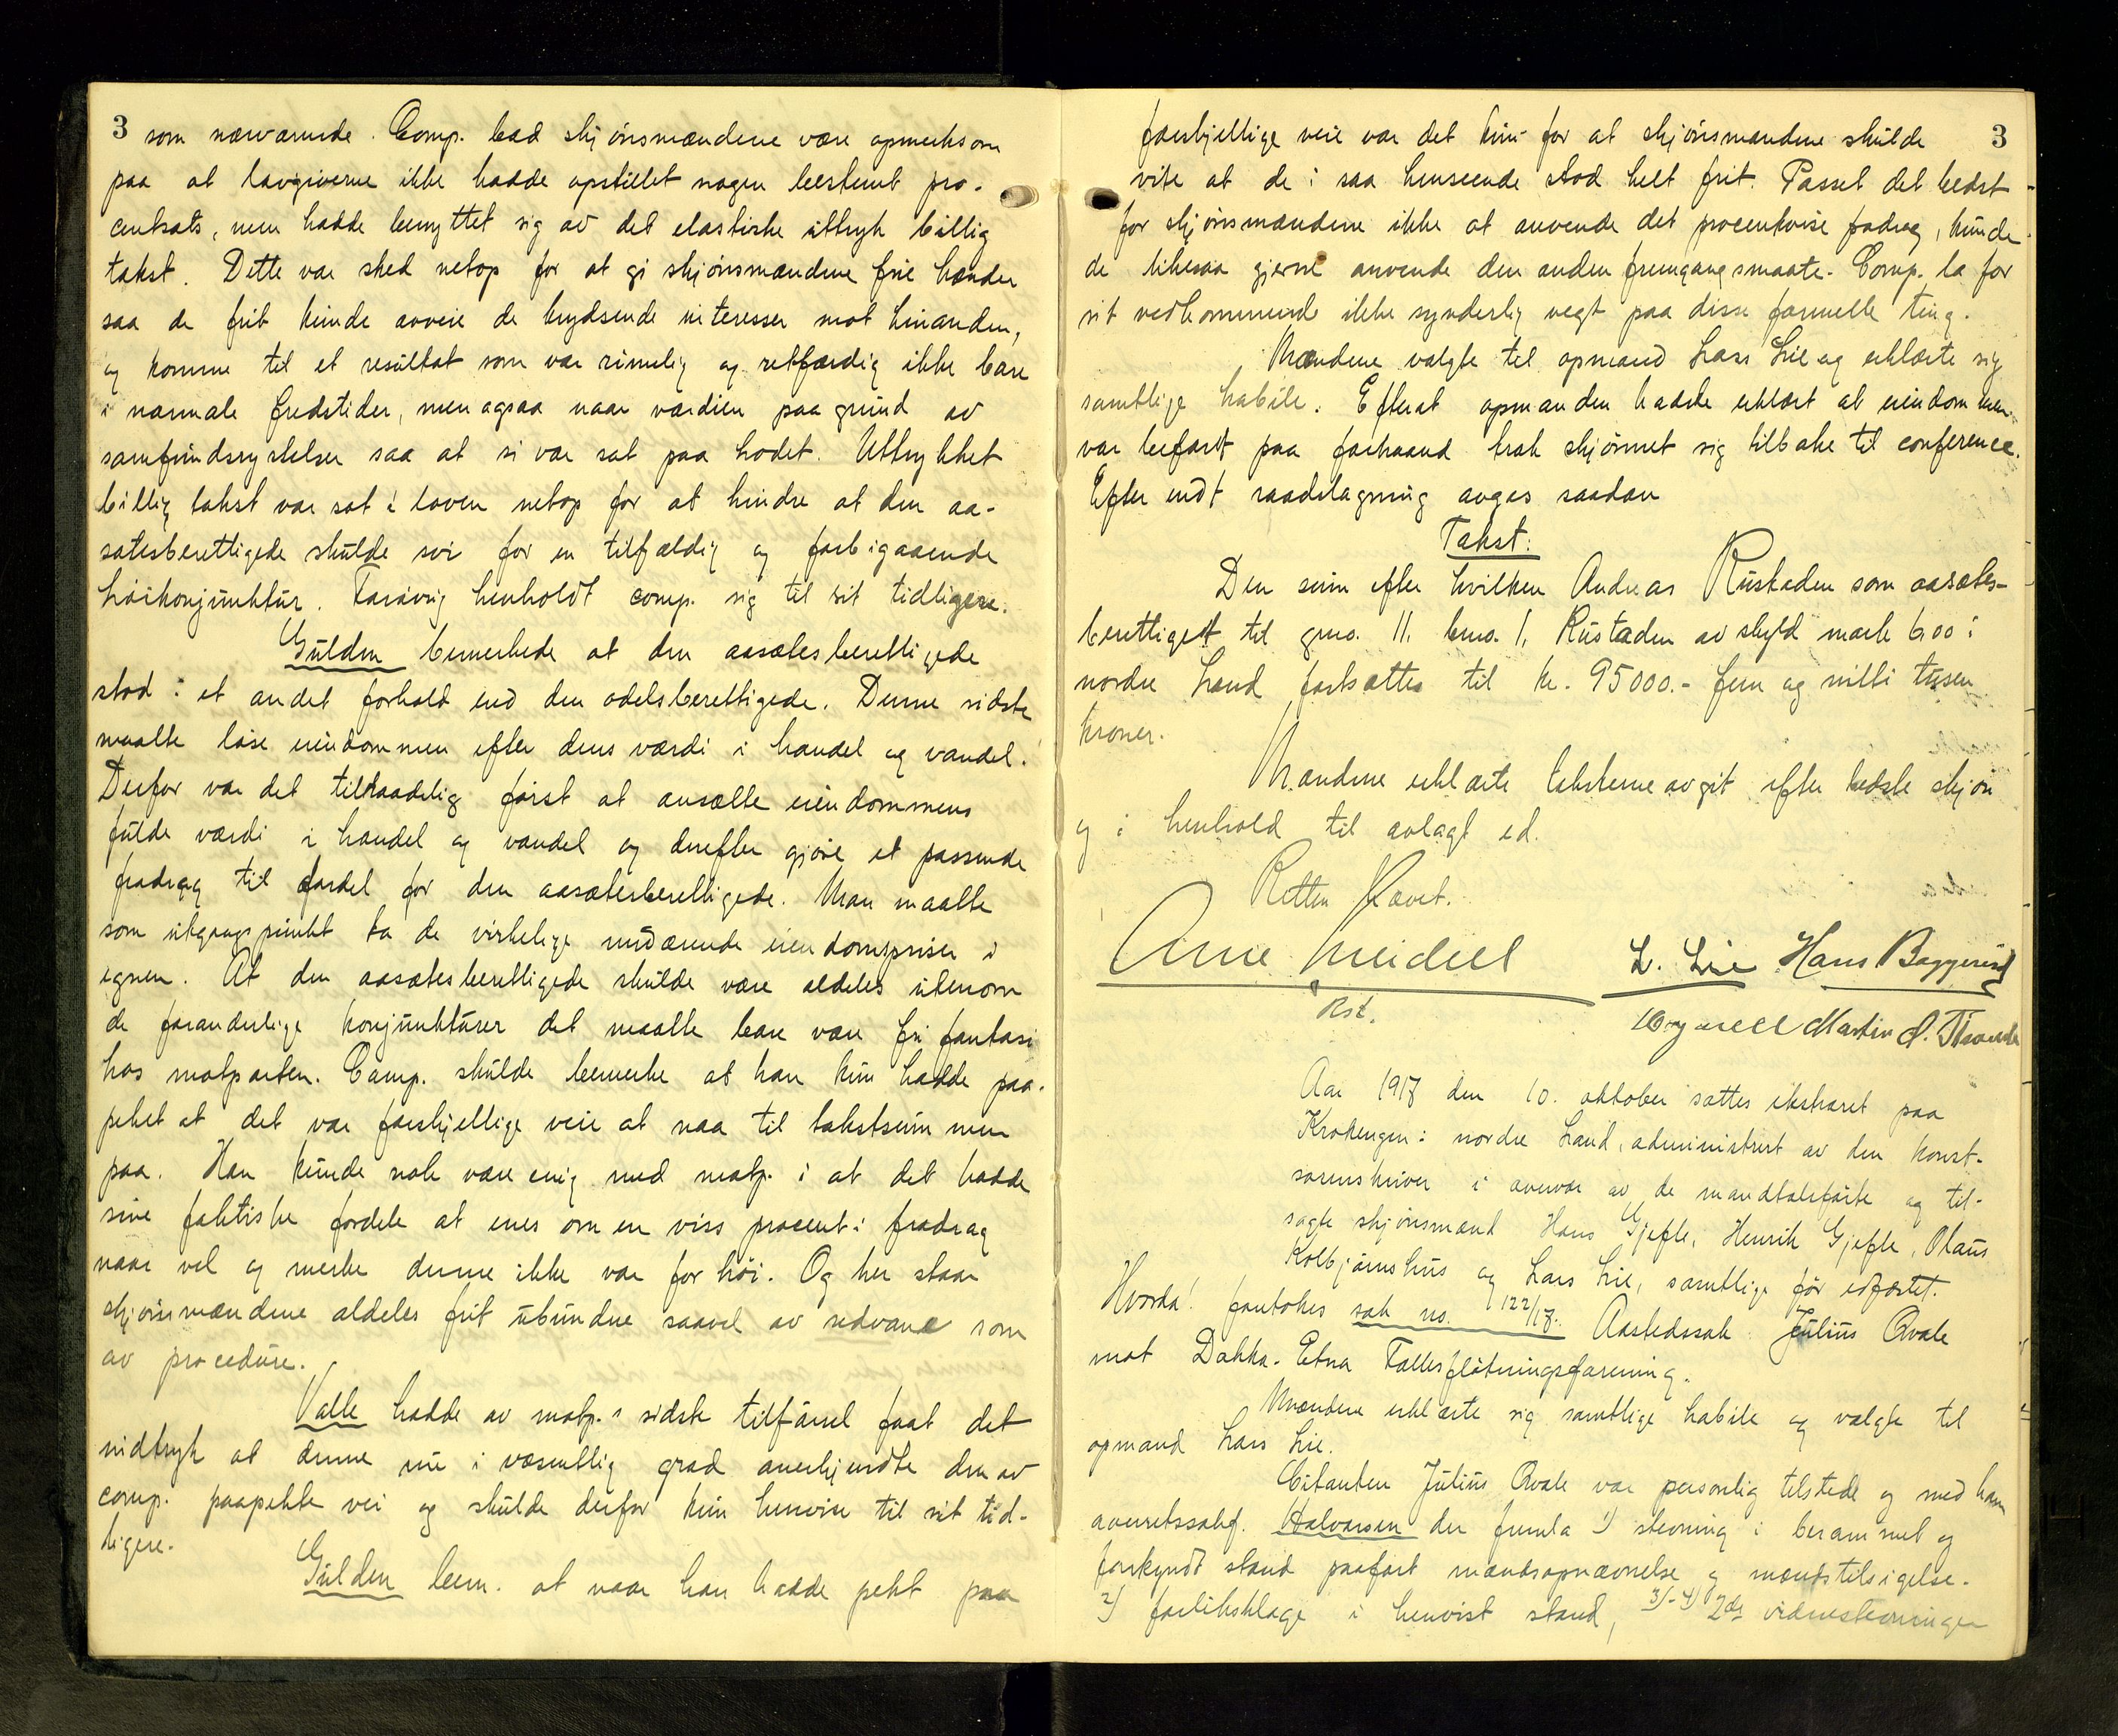 3
som nærværende. Comp. bad skjønsmændene være opmerksom
paa at lovgiverne ikke hadde opstillet nogen bestemt pro-
centsats, men hadde benyttet sig av det elastiske uttryk billig
takst. Dette var sked netop for at gi skjønsmændene frie hænder
saa de frit kunde avveie de krydsende interesser mot hinanden,
og komme til et resultat som var rimelig og retfærdig ikke bare
i normale fredstider, men ogsaa naar værdien paa grund av
samfundsrystelser saa at si var sat paa hodet. Uttrykket
billig takst var sat i loven netop for at hindre at den aa-
sætesberettigede skulde svi for en tilfældig og forbigaaende
høikonjunktur. Forøvrig henholdt comp. sig til sit tidligere.
Gulden bemerkede at den aasætesberettigede
stod i et andet forhold end den odelsberettigede. Denne sidste
maatte løse eiendommen efter dens værdi i handel og vandel.
Derfor var det tilraadelig først at ansætte eiendommens
fulde værdi i handel og vandel og derefter gjøre et passende
fradrag til fordel for den aasætesberettigede. Man maatte
som utgangspunkt ta de virkelige nuværende eiendomspriser i
egnen. At den aasætesberettigede skulde være aldeles utenom
de foranderlige konjunkturer det maatte bare være fri fantasi
hos motparten. Comp. skulde bemerke at han kun hadde paa-
peket at det var forskjellige veie at naa til takstsummen
paa. Han kunde nok være enig med motp. i at det hadde
sine faktiske fordele at enes om en viss procent i fradrag
naar vel og merke denne ikke var for høi. Og her staar
skjønsmændene aldeles frit ubundne saavel av sedvane som
av procedure.
Valle hadde av motp.s sidste tilførsel faat det
indtryk at denne nu i væsentlig grad anerkjendte den av
comp. paapekte vei og skulde derfor kun henvise til sit tid-
ligere.
Gulden bem. at naar han hadde pekt paa
3
forskjellige veie var det kun for at skjønsmændene skulde
vite at de i saa henseende stod helt frit. Passet det bedst
for skjønsmændene ikke at anvende det procentvise fradrag, kunde
de likesaa gjerne anvende den anden fremgangsmaate. Comp. la for
sit vedkommende ikke synderlig vegt paa disse formelle ting.
Mændene valgte til opmand Lars Lie og erklærte sig
samtlige habile. Efterat opmanden hadde erklært at eiendommen
var befart paa forhaand trak skjønnet sig tilbake til conference.
Efter endt raadslagning avgas saadan
Takst:
Den sum efter hvilken Andreas Rustaden som aasætes-
berettiget til gno. 11. bno. 1. Rustaden av skyld mark 6,00 i
nordre Land fastsættes til kr. 95000.- fem og nitti tusen
kroner.
Mændene erklærte taksterne avgit efter bedste skjøn
og i henhold til avlagt ed.
Retten hævet.
Arne Meidell L. Lie Hans Baggerud
Kst. Martin O.
Aar 1917 den 10. oktober sattes ekstraret paa
Krokengen i nordre Land, administrert av den konst.
sorenskriver i overvær av de mandtalsførte og til-
sagte skjønsmænd Hans Gjefle, Henrik Gjefle, Olaus
Kolbjørnshus og Lars Lie, samtlige før edfæstet.
Hvorda! foretokes sak no. 122/17. Aastedssak Julius Qvale
mot Dokka-Etna Fællesfløtningsforening.
Mændene erklærte sig samtlige habile og valgte til
opmand Lars Lie.
Citanten Julius Qvale var personlig tilstede og med ham
overretssakf. Halvorsen der fremla 1) stevning i berammet og
forkyndt stand paaført mandsopnævnelse og mandstilsigelse.
2) forliksklage i henvist stand, 3)-4) 2de vidnestevninger